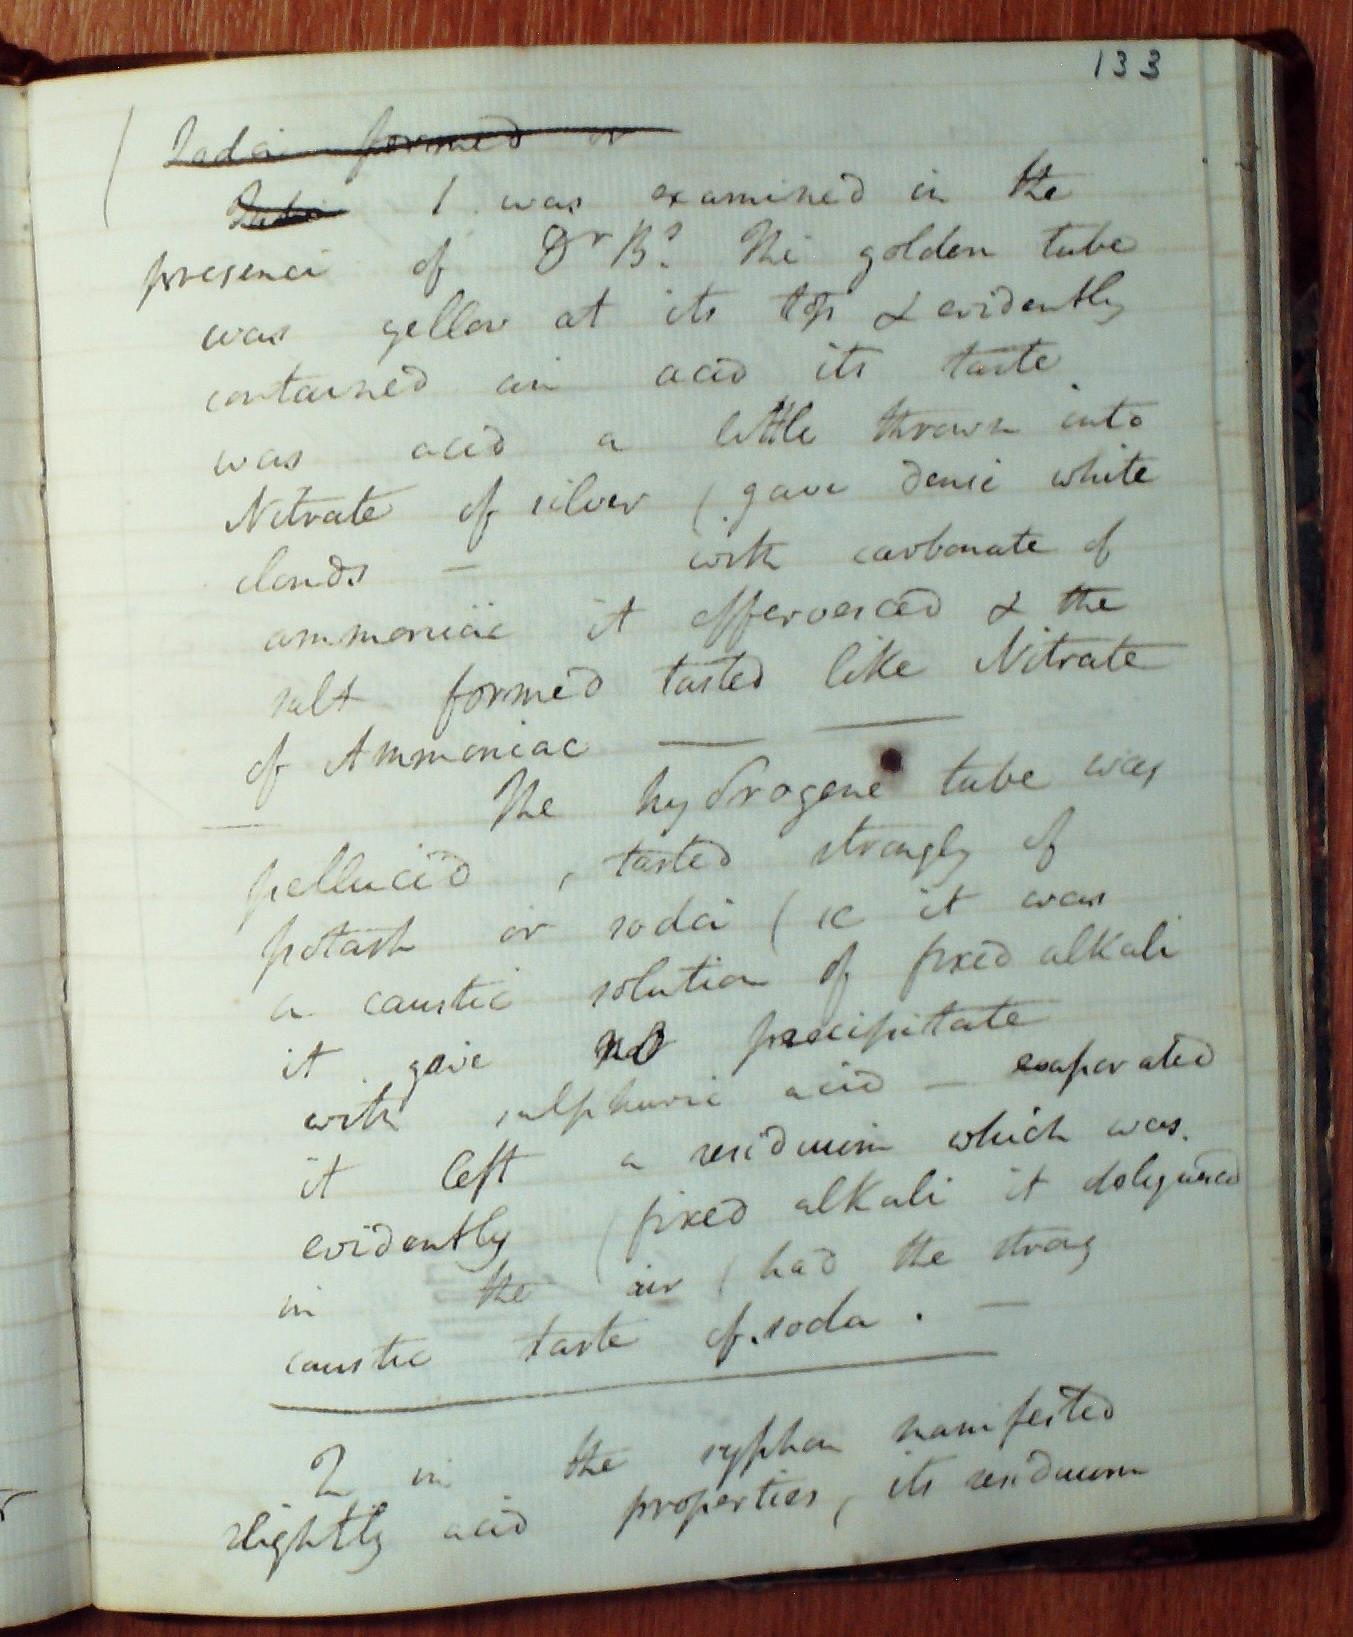 133
Soda formed or
1 was examined in the
presence of Dr B? The golden tube
was yellow at its top & evidently
contained an acid its taste
was acid a little thrown into
Nitrate of silver ( gave dense white
clouds — with carbonate of
ammoniac it effervesced & the
salt formed tasted like Nitrate
of Ammoniac — —
The hydrogene tube was
pellucid , tasted strongly of
potash or soda ( ie it was
a caustic solution of fixed alkali
it gave no precipitate
with sulphuric acid — evaporated
it left a residuum which was
evidently ( fixed alkali it deliquesced
in the air ( had the strong
caustic taste of soda . —
2 in the syphon manifested
slightly acid properties, its residuum